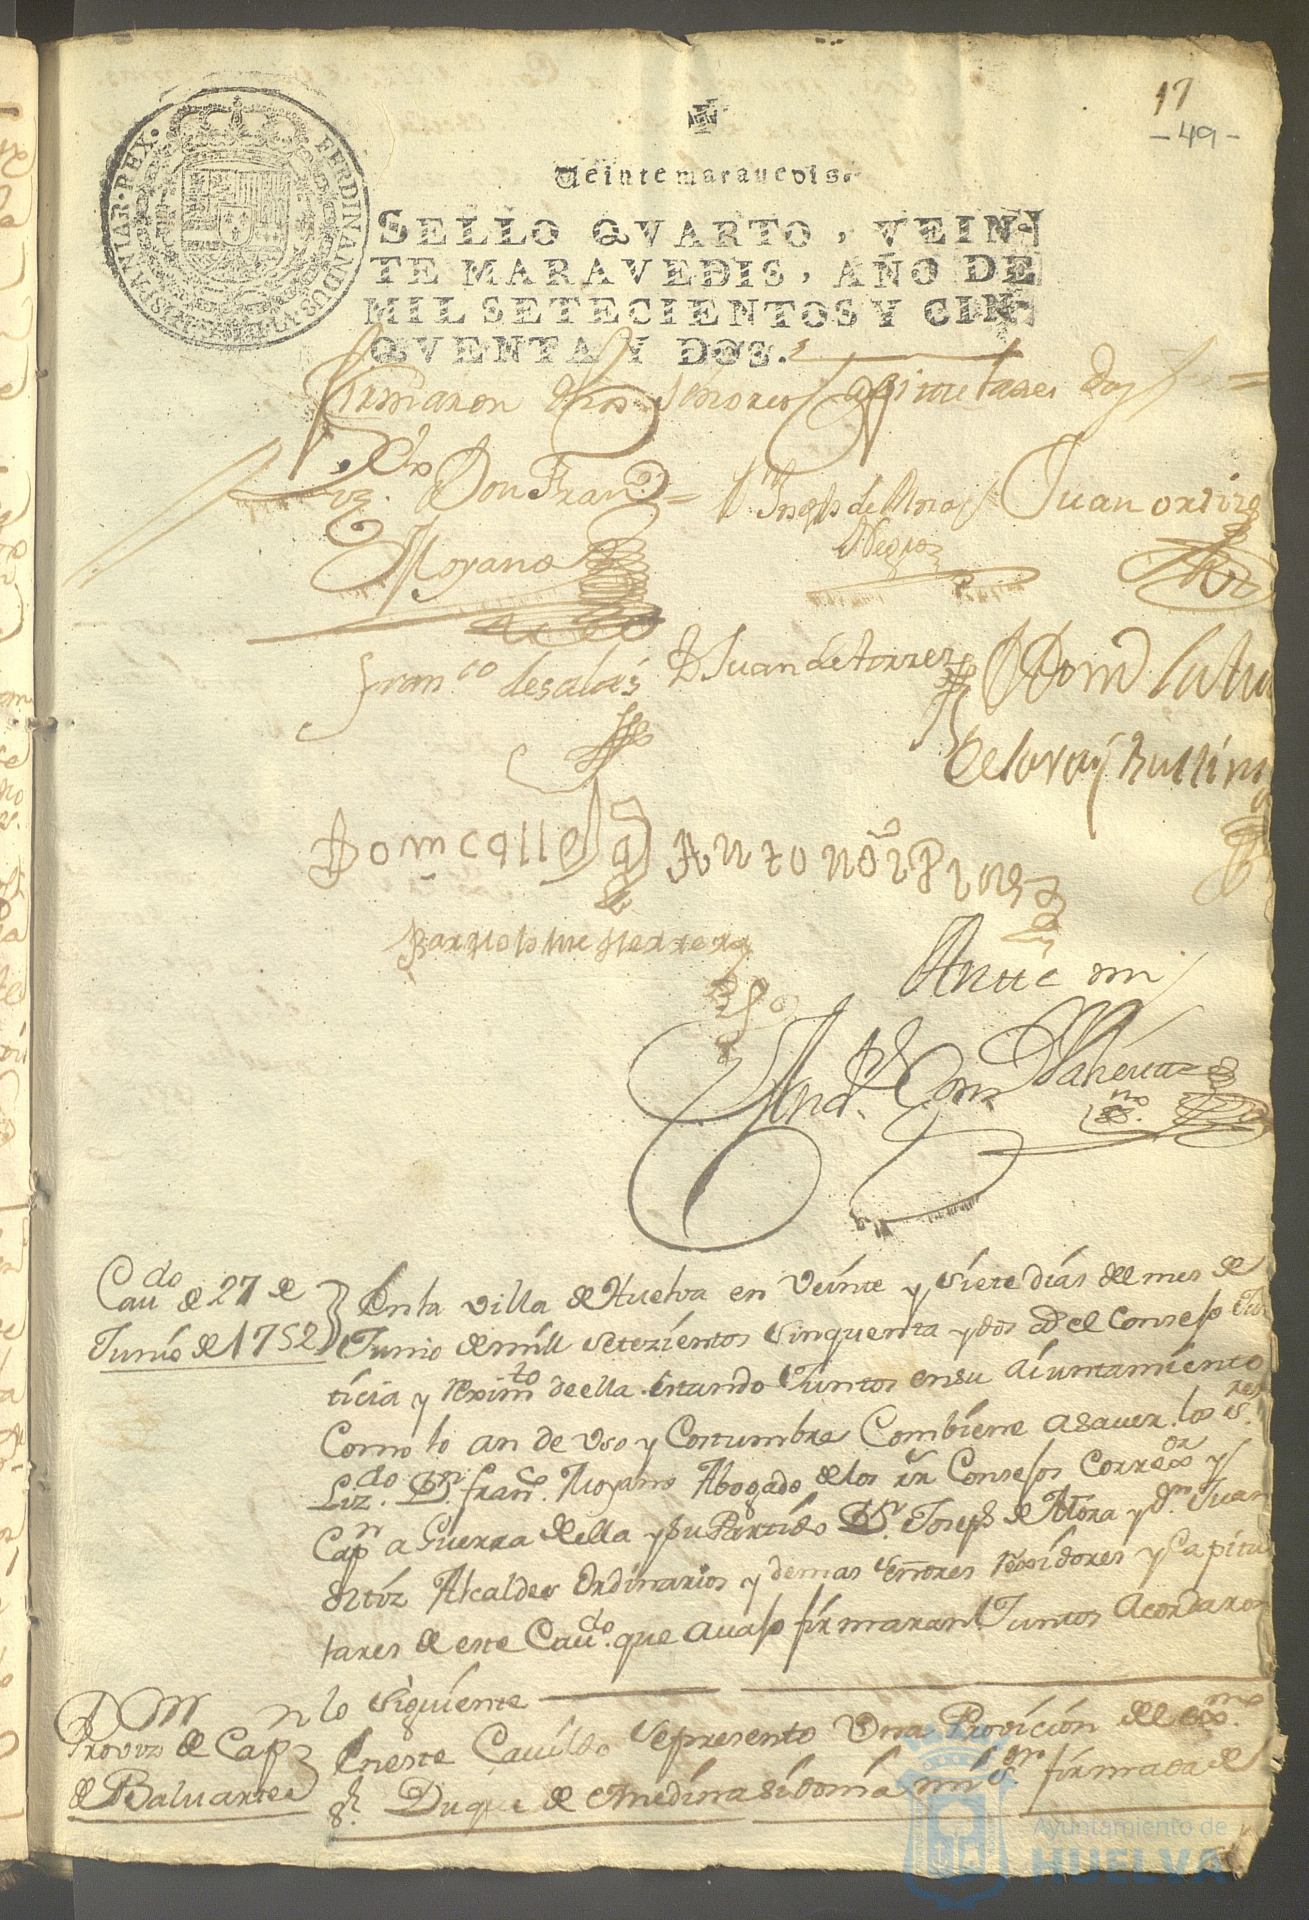 17
- 49 -
FERDINANDUS·VI·D·G·HISPANIAR·REX·
Veinte maravedis.
SELLO QVARTO, VEIN-
TE MARAVEDIS, AÑO DE
MIL SETECIENTOS Y CIN-
QVENTA Y DOS.
firmaron dhos señores Capitulares doy fe =
Lizdo Don Franco Moyano
Dn Joseph de Mora Negro
Juan ortiz
Franco de salas
D Juan de torrez
Dom calle
Antonio
Bartholome Herrera
Ante mi
Cavdo de 27 de
Junio de 1752
Enla villa de Huelva en Veinte y siete dias del mes de
Junio de mill setezientos sinquenta y dos as el Consejo Jus
ticia y reximto de ella estando Juntos en su aiuntamiento
Como lo an de uso y Costumbre Combiene asaver los sres
Lizdo Dn Franco Moyano Abogado de los rrs Consejos Corredor y
Capn a Guerra de ella y su Partido Dn Joseph de Mora y Dn Juan
Ortiz Alcaldes Ordinarios y demas señores rexidores y Capitu
lares de este Cavdo que avajo firmaran Juntos acordaron
lo siguiente
Provizn de Capn
de Baluartes
En este Cavildo se presento Una Provicion del exmo
sr Duque de Medina sidonia mi sr firmada de
Ayuntamiento de
HUELVA